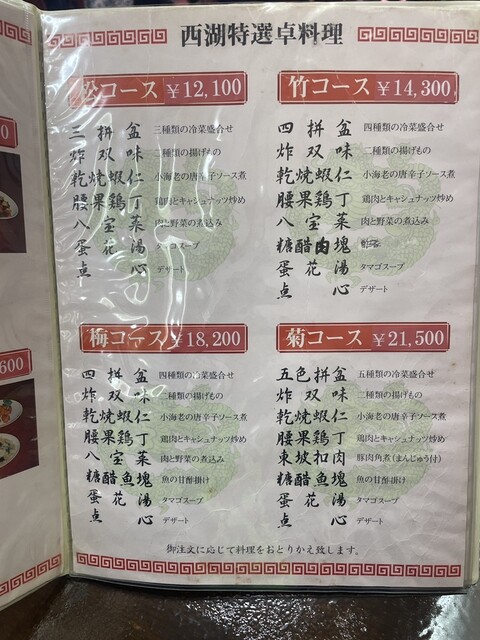 西湖特選卓料理
松コース ¥12,100
三拼盆 三種類の冷菜盛合せ
炸双味 二種類の揚げもの
乾焼蝦仁 小海老の唐辛子ソース煮
腰果鶏丁 鶏肉とキャシュナッツ炒め
八宝菜 肉と野菜の煮込み
蛋花湯 タマゴスープ
点心 デザート
竹コース ¥14,300
四拼盆 四種類の冷菜盛合せ
炸双味 二種類の揚げもの
乾焼蝦仁 小海老の唐辛子ソース煮
腰果鶏丁 鶏肉とキャシュナッツ炒め
八宝菜 肉と野菜の煮込み
糖醋肉塊 酢豚
蛋花湯 タマゴスープ
点心 デザート
梅コース ¥18,200
四拼盆 四種類の冷菜盛合せ
炸双味 二種類の揚げもの
乾焼蝦仁 小海老の唐辛子ソース煮
腰果鶏丁 鶏肉とキャシュナッツ炒め
八宝菜 肉と野菜の煮込み
糖醋魚塊 魚の甘酢掛け
蛋花湯 タマゴスープ
点心 デザート
菊コース ¥21,500
五色拼盆 五種類の冷菜盛合せ
炸双味 二種類の揚げもの
乾焼蝦仁 小海老の唐辛子ソース煮
腰果鶏丁 鶏肉とキャシュナッツ炒め
東坡扣肉 豚肉角煮(まんじゅう付)
糖醋魚塊 魚の甘酢掛け
蛋花湯 タマゴスープ
点心 デザート
御注文に応じて料理をおとりかえ致します。